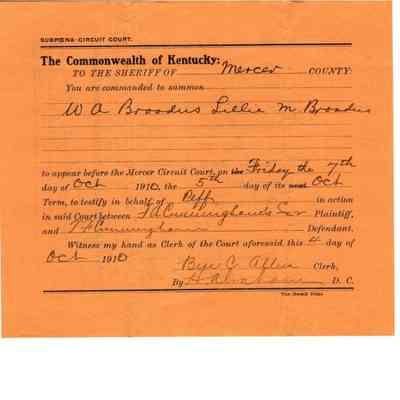 SUBPŒNA-CIRCUIT COURT.
The Commonwealth of Kentucky:
TO THE SHERIFF OF Mercer COUNTY:
You are commanded to summon
W A Broadus Lillie M Broadus
to appear before the Mercer Circuit Court, on the Friday the 7th
day of Oct 1910, the 5th day of its next Oct
Term, to testify in behalf of Deff in action
in said Court between Plaintiff,
and Cunningham Defendant.
Witness my hand as Clerk of the Court aforesaid, this 4 day of
Oct 1910
Allen Clerk,
By D. C.